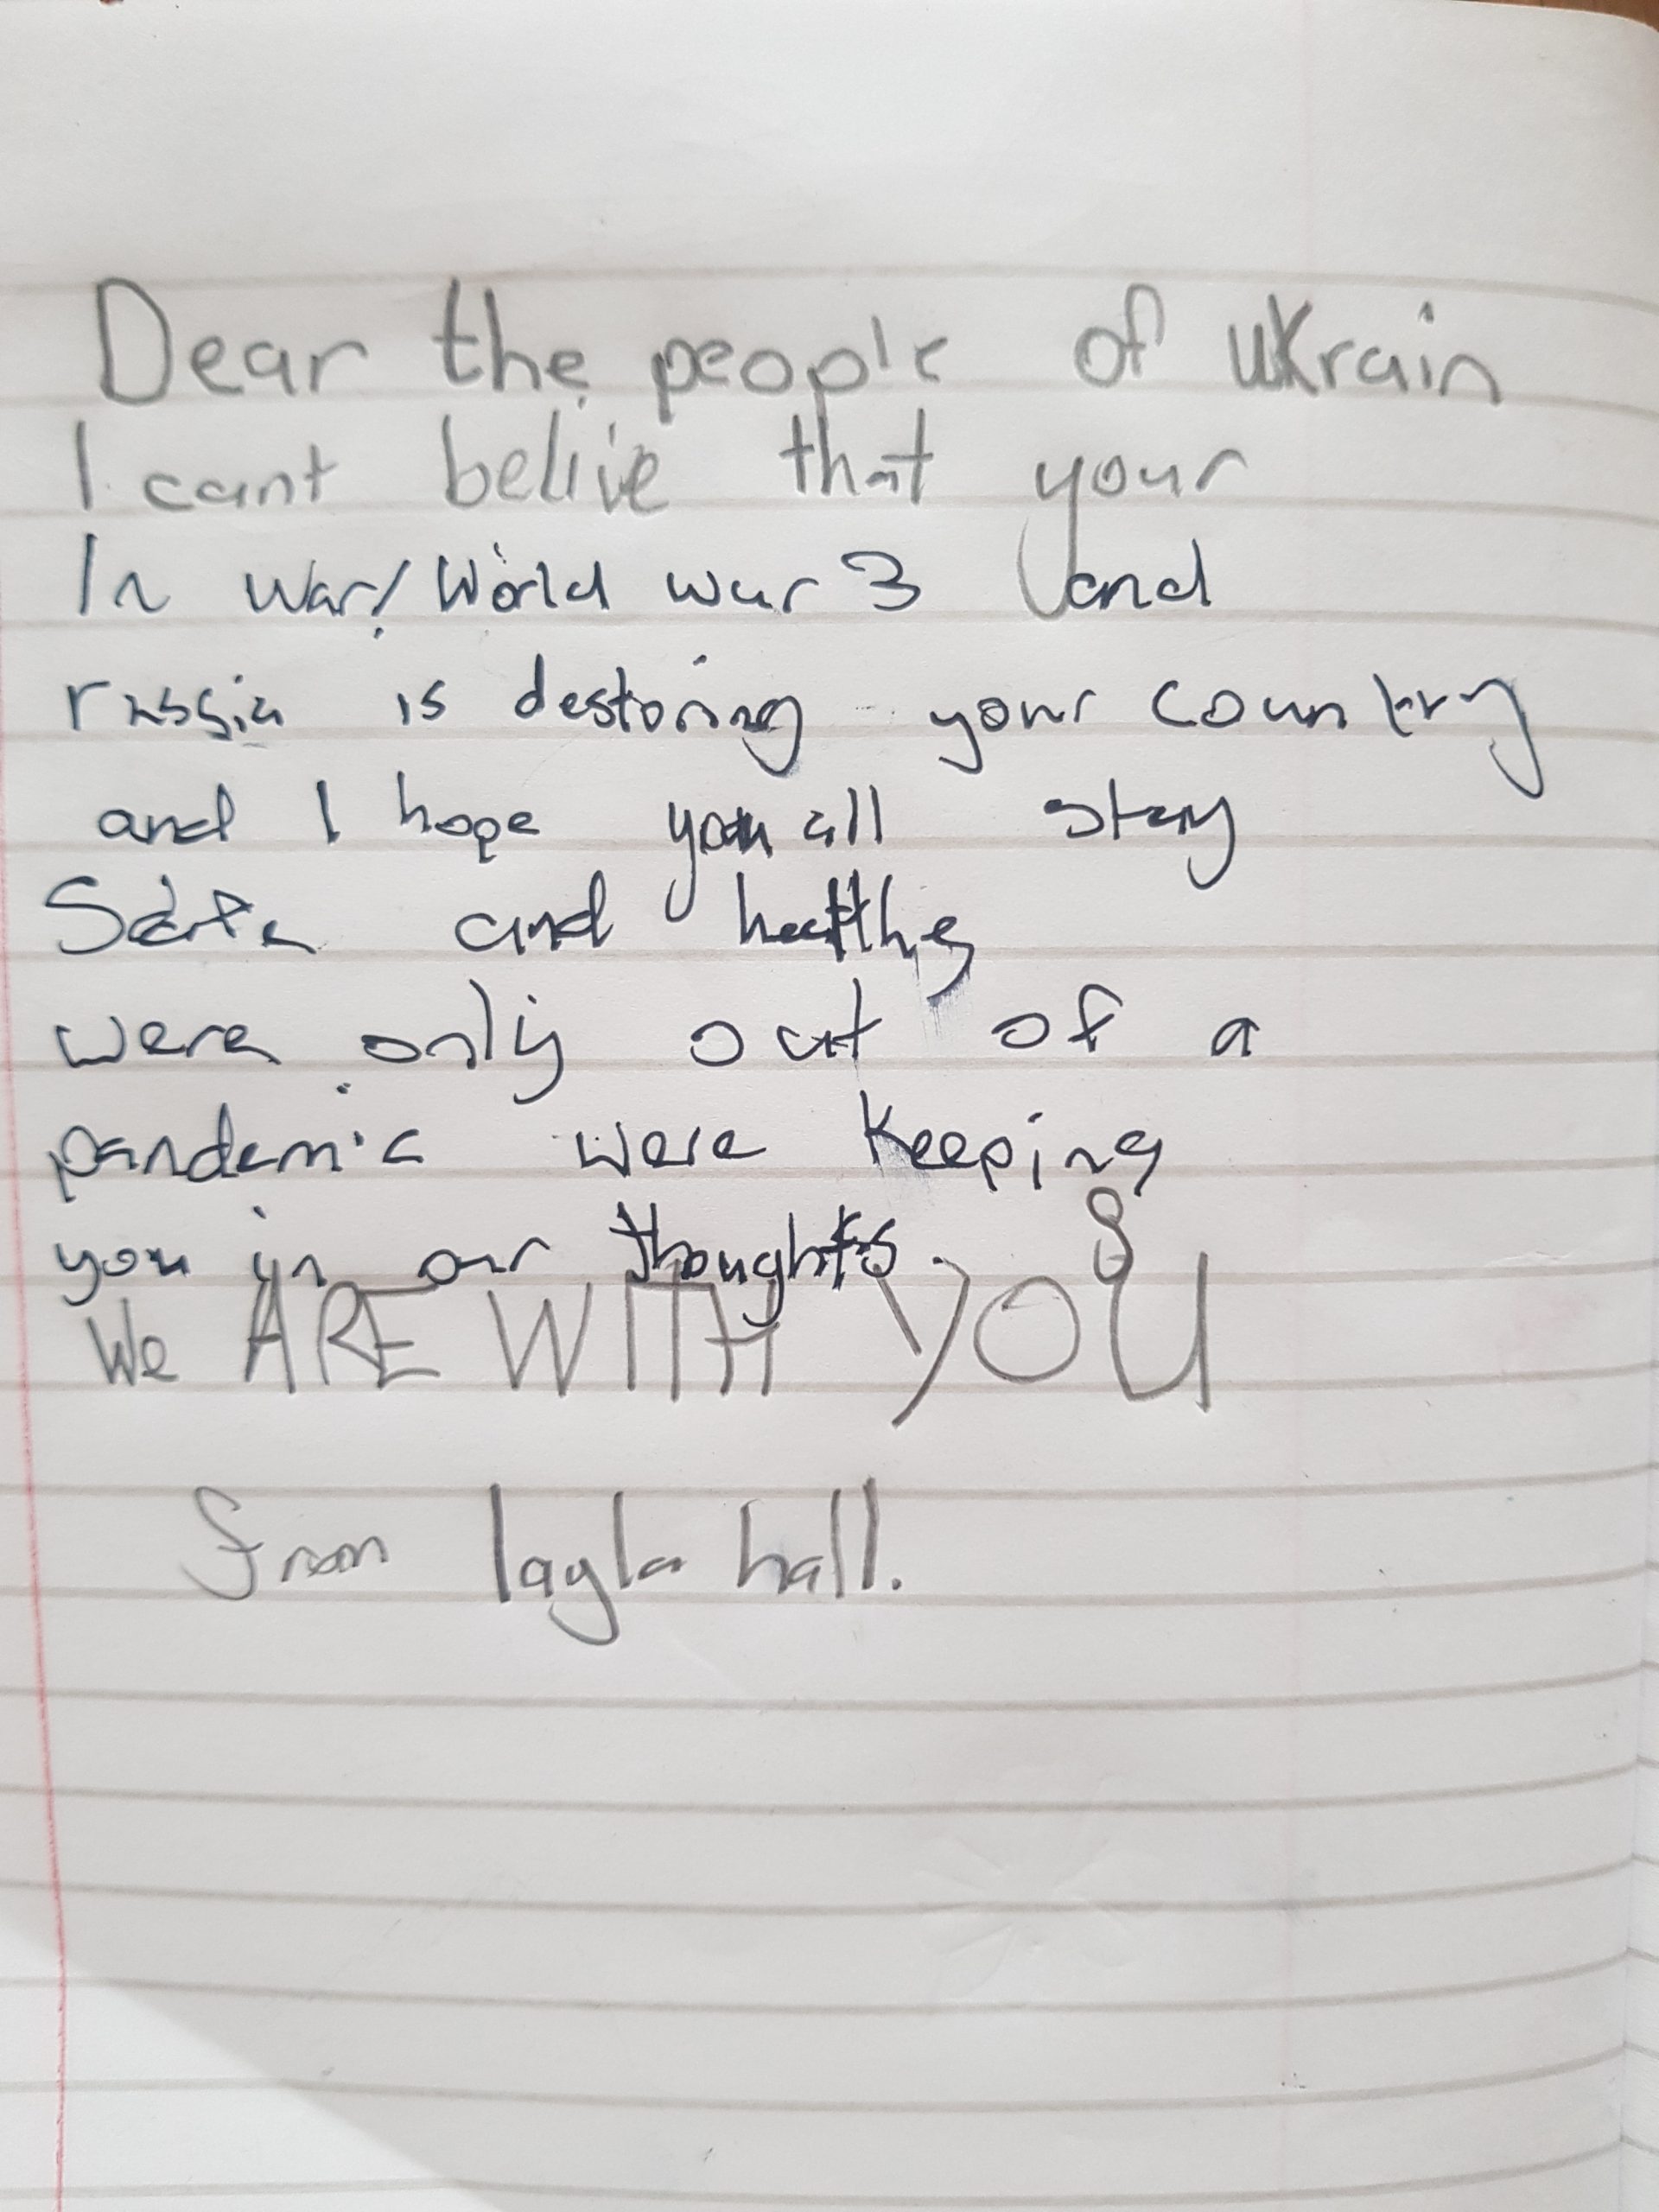 Dear the people of ukrain
I cant belive that your
In war/World war 3 and
russia is destoring your country
and I hope you all stay
Safe and healthy
were only out of a
pandemic were keeping
you in our thoughts.
We ARE WITH YOU
from layla hall.